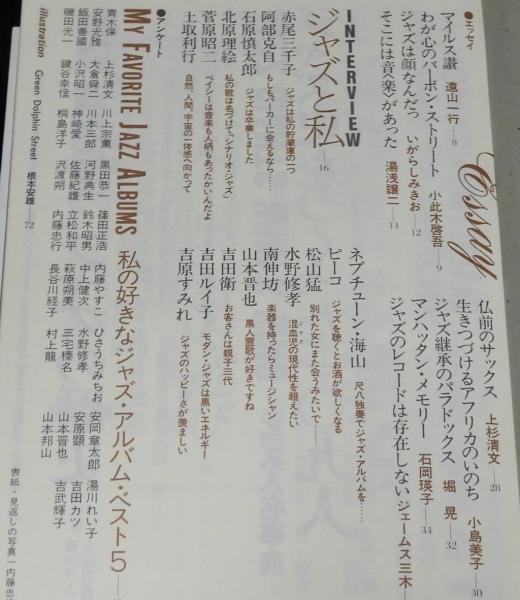 ●エッセイ
マイルス讃 遠山一行—8
わが心のバーボン・ストリート 小此木啓吾—9
ジャズは顔なんだっ いがらしみきお—12
そこには音楽があった 湯浅譲二—14
Essay
仏前のサックス 上杉清文—28
生きつづけるアフリカのいのち 小島美子—30
ジャズ継承のパラドックス 堀 晃—32
マンハッタン・メモリー 石岡瑛子—34
ジャズのレコードは存在しない ジェームス三木—
INTERVIEW
ジャズと私—16
赤尾三千子 ジャズは私の貯蔵庫の一つ
阿部克自 もしもパーカーに会えるなら……
石原慎太郎 ジャズは卒業しました
北原理絵 私の歌は名づけて「シナリオ・ジャズ」
菅原昭二 ベイシーは音楽も人柄もあったかいんだよ
土取利行 自然、人間、宇宙の一体感へ向かって
ネプチューン・海山 尺八独奏でジャズ・アルバムを……
ピーコ ジャズを聴くとお酒が欲しくなる
松山猛 別れた女にまた会うみたいで——
水野修孝 混血児の現代性を超えたい
南伸坊 楽器を持ったらミュージシャン
山本晋也 黒人霊歌が好きですね
吉田衛 お客さんは親子三代
吉田ルイ子 モダン・ジャズは黒いエネルギー
吉原すみれ ジャズのハッピーさが羨ましい
●アンケート
MY FAVORITE JAZZ ALBUMS 私の好きなジャズ・アルバム・ベスト5—
青木保 上杉清文 川上宗薫 黒田恭一 篠田正浩 内藤やすこ ひさうちみちお 安岡章太郎 湯川れい子
安野光雅 大倉舜二 川本三郎 河野典生 鈴木昭男 中上健次 水野修孝 安原顕 吉田カツ
飯田善國 小沢昭一 神崎愛 佐藤紀雄 立松和平 萩原朔美 三宅榛名 山本晋也 吉武輝子
磯田光一 鍵谷幸信 桐島洋子 沢渡朔 内藤忠行 長谷川経子 村上龍 山本邦山
illustration Green Dolphin Street 根本安雄—72
表紙・見返しの写真—内藤忠